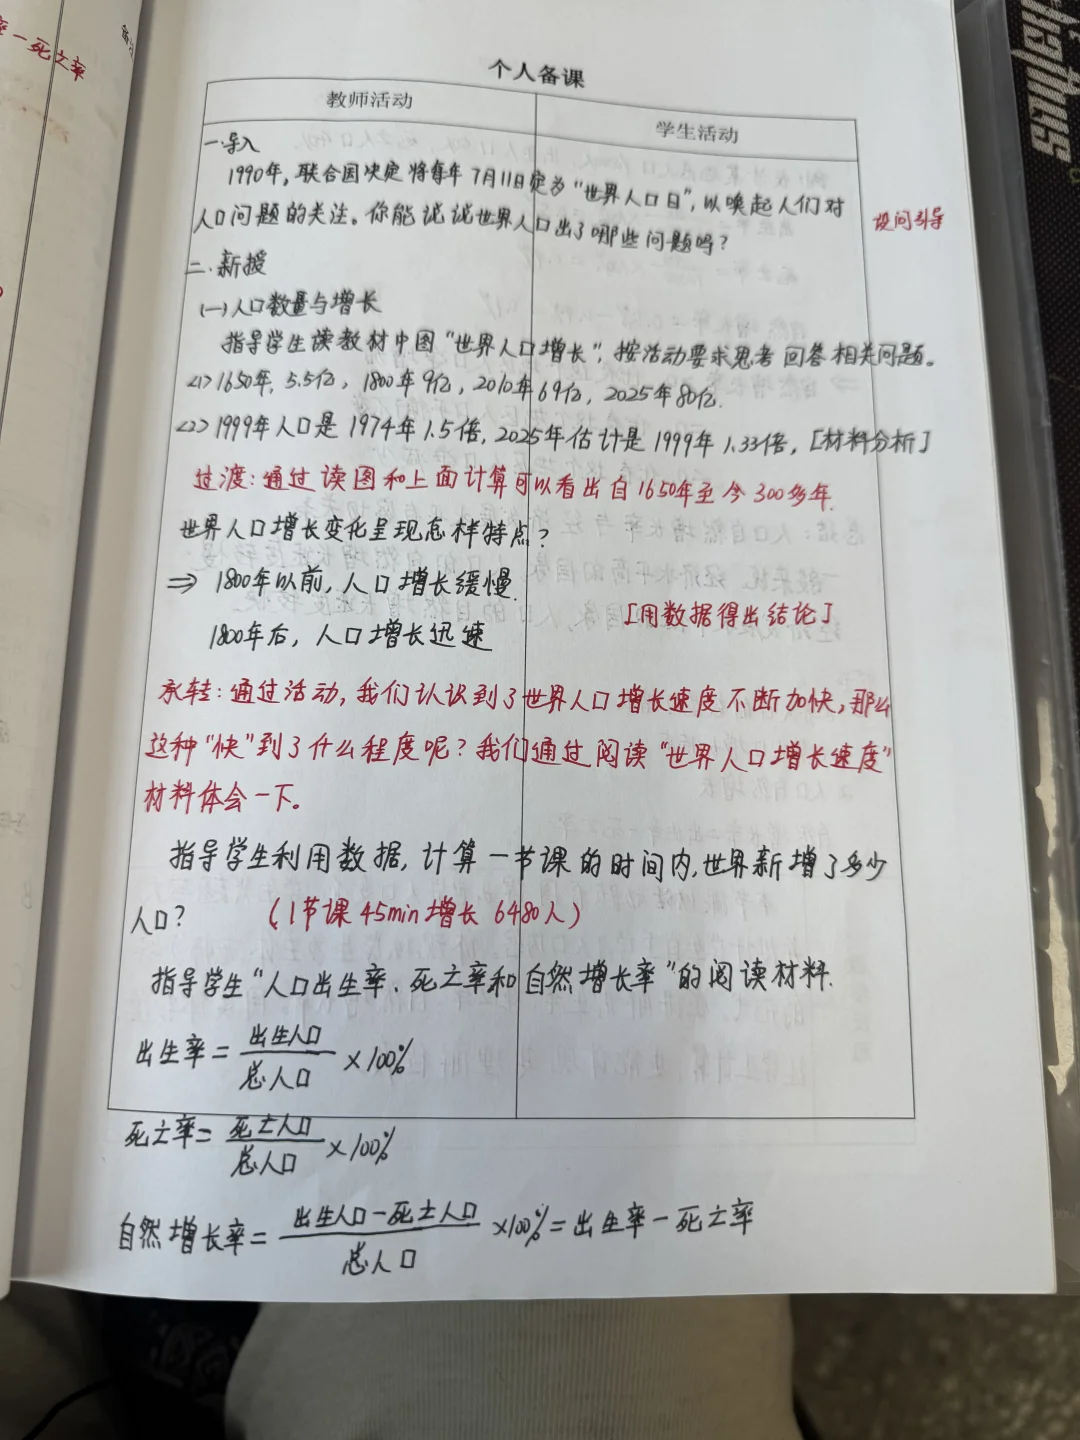 率-死亡率
个人备课
教师活动
学生活动
一.导入
1990年,联合国决定将每年7月11日定为“世界人口日”,以唤起人们对
人口问题的关注。你能说说世界人口出了哪些问题吗?
设问引导
二.新授
(一)人口数量与增长
指导学生读教材中图“世界人口增长”,按活动要求思考回答相关问题。
<1>1650年,5.5亿,1800年9亿,2010年69亿,2025年80亿.
<2>1999年人口是1974年1.5倍,2025年估计是1999年1.33倍,[材料分析]
过渡:通过读图和上面计算可以看出自1650年至今300多年.
世界人口增长变化呈现怎样特点?
⇒ 1800年以前,人口增长缓慢.
[用数据得出结论]
1800年后,人口增长迅速
承转:通过活动,我们认识到了世界人口增长速度不断加快,那么
这种“快”到了什么程度呢?我们通过阅读“世界人口增长速度”
材料体会一下。
指导学生利用数据,计算一节课的时间内,世界新增了多少
人口? (1节课45min增长6480人)
指导学生“人口出生率、死亡率和自然增长率”的阅读材料.
出生率=出生人口/总人口×100%
死亡率=死亡人口/总人口×100%
自然增长率=出生人口-死亡人口/总人口×100%=出生率-死亡率